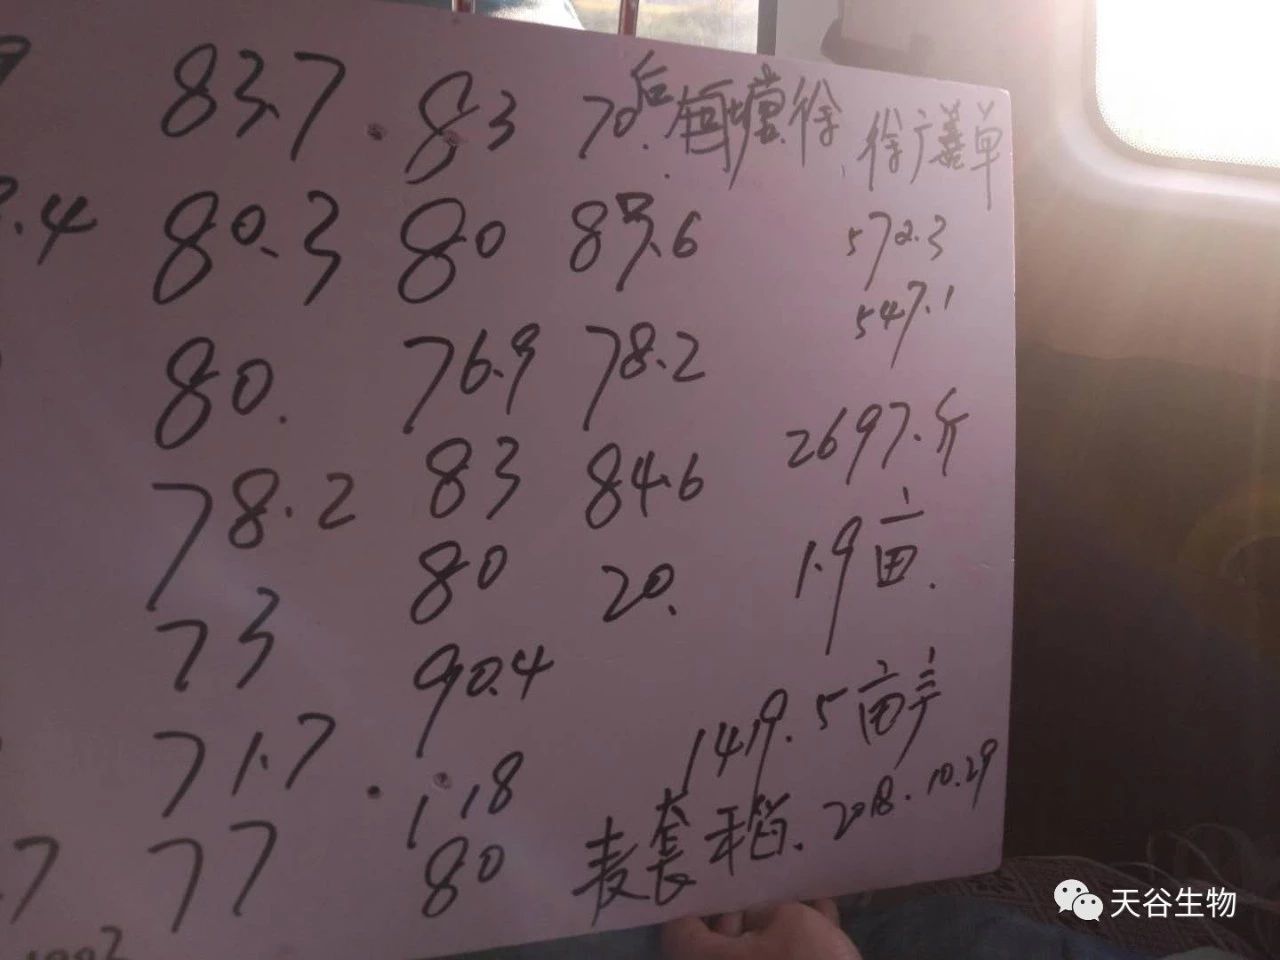 83.7
80.3
80.
78.2
73
71.7
77
83
80
76.9
83
80
90.4
118
80
70.
83.6
78.2
84.6
20.
徐广义单
572.3
547.1
2697.斤
1.9亩.
1419.5亩产
麦套稻. 2018.10.29
天谷生物